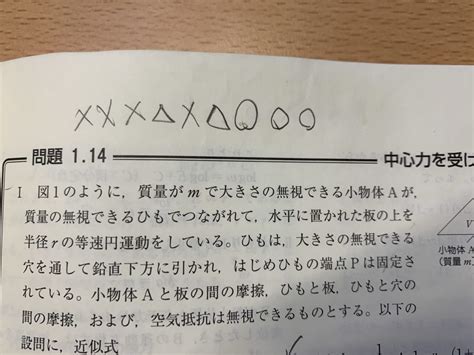 ××××△×△○○○
問題 1.14
中心力を受け
I 図1のように，質量が m で大きさの無視できる小物体 A が，
質量の無視できるひもでつながれて，水平に置かれた板の上を
半径 r の等速円運動をしている。ひもは，大きさの無視できる
穴を通して鉛直下方に引かれ，はじめひもの端点 P は固定さ
れている。小物体 A と板の間の摩擦，ひもと板，ひもと穴の
間の摩擦，および，空気抵抗は無視できるものとする。以下の
設問に，近似式
V
小物体 A
(質量 m)